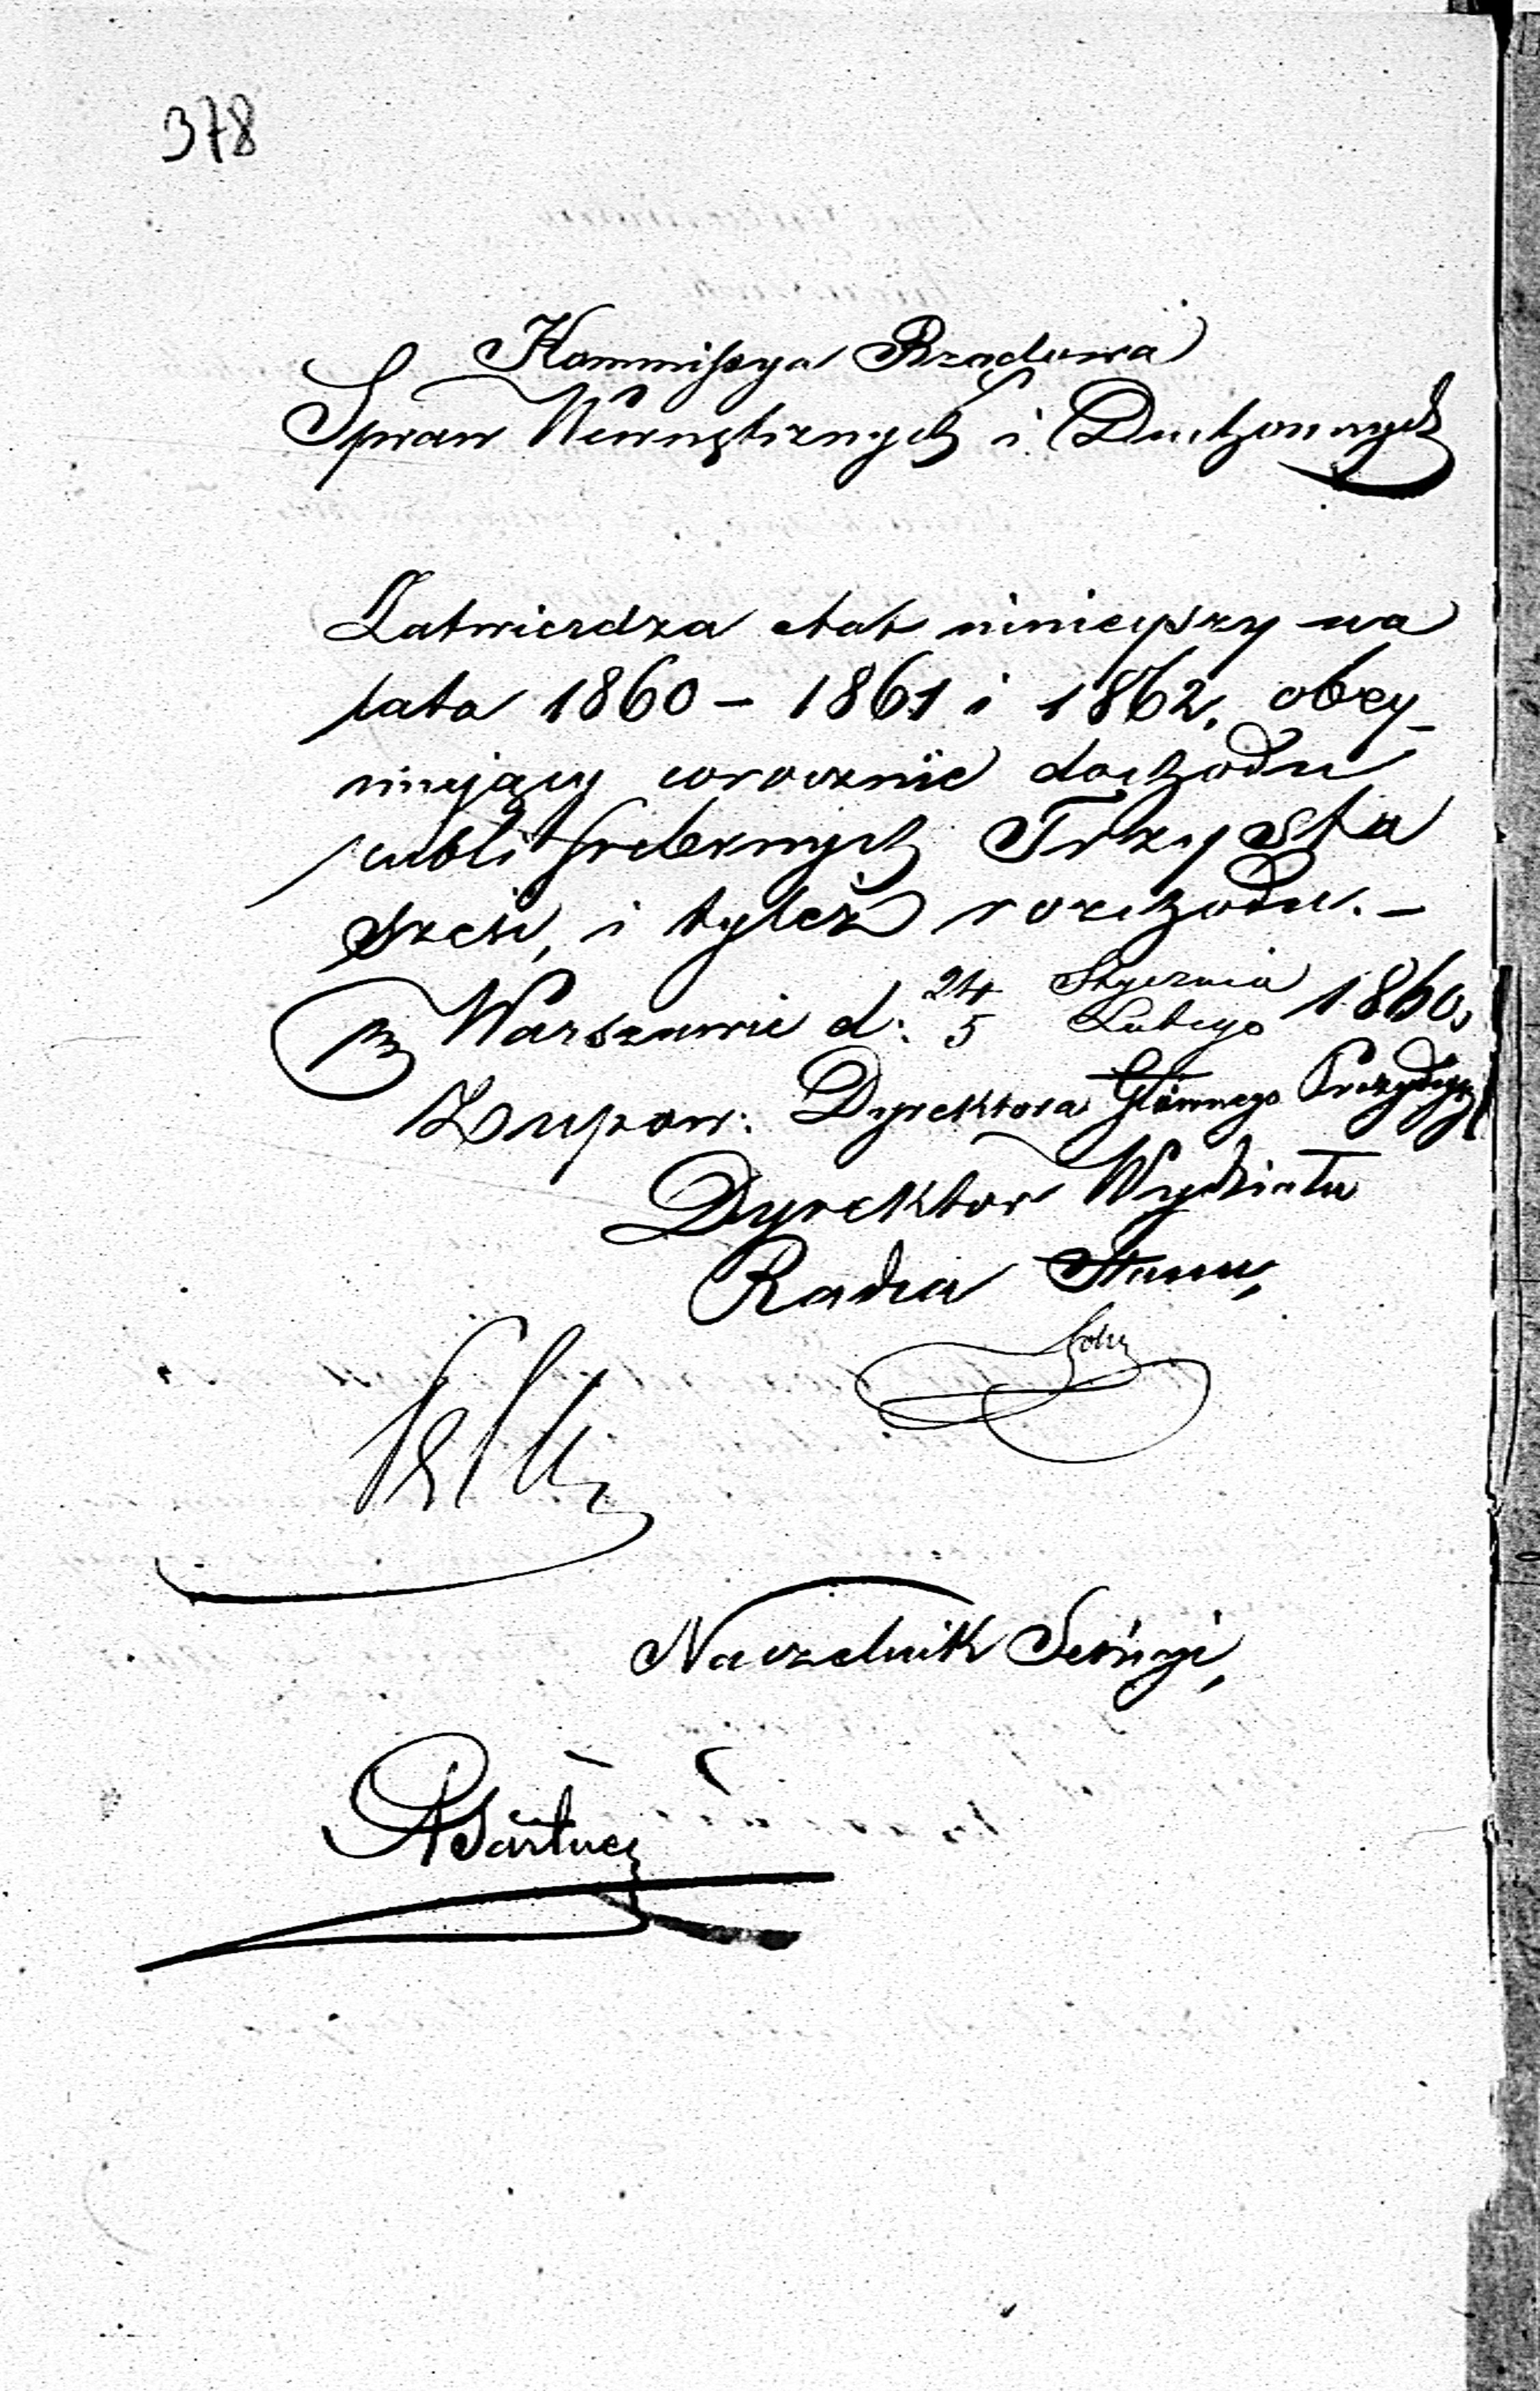 378
Kommissya Rządowa
Spraw Wewnętrznych i Duchownych
Zatwierdza etat niniejszy na
lata 1860 – 1861 i 1862, obey-
mujący corocznie dochodu
rubli srebrnych Trzysta
sześć, i tyleż rozchodu. –
w Warszawie d: 24 Stycznia / 5 Lutego 1860.
Z upow: Dyrektora Głównego Prezydującego
Dyrektor Wydziału
Radca Stanu,
Naczelnik Sekcyi,